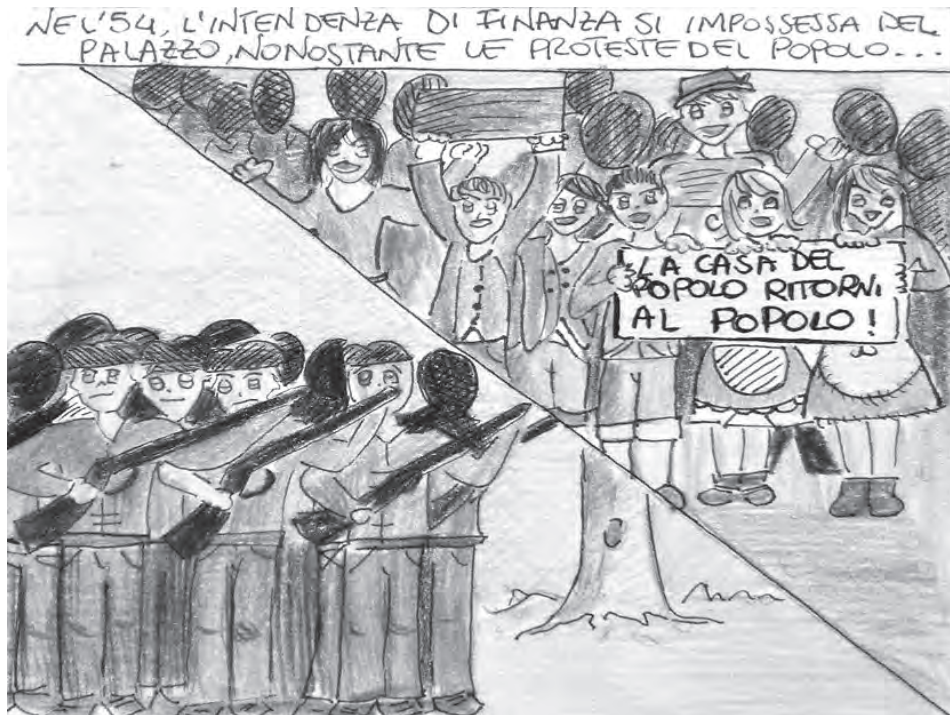 NEL'54, L'INTENDENZA DI FINANZA SI IMPOSSESSA DEL
PALAZZO, NONOSTANTE LE PROTESTE DEL POPOLO...
LA CASA DEL
POPOLO RITORNI
AL POPOLO!